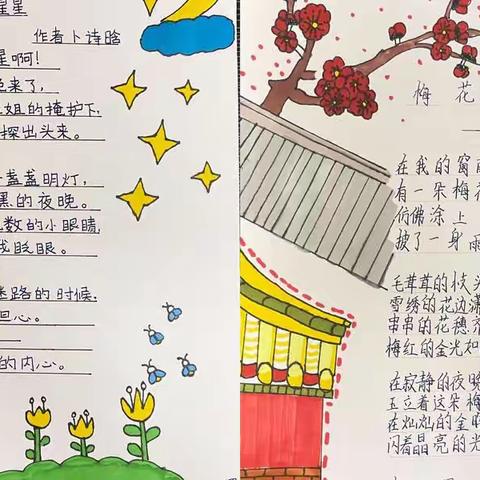 星星
作者卜诗晗
星啊!
来了,
姐的掩护下,
探出头来。
一盏盏明灯,
黑的夜晚。
数的小眼睛,
我眨眼。
迷路的时候,
回心。
的内心。
梅花
在我的窗前
有一朵梅花
仿佛涂上
披了一身雨
毛茸茸的枝头
雪绣的花边潇
串串的花穗齐
梅红的金光如
在寂静的夜晚
五立着这朵梅
在灿灿的金
闪着晶亮的光